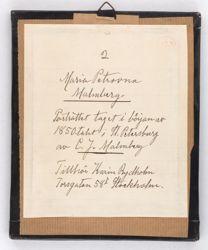 2
Maria Petrovna
Malmberg.
Porträttet taget i början av
1850talet i St. Petersburg
av C. J. Malmberg
Tillhör Karin Rydholm
Torsgatan 58 Stockholm.